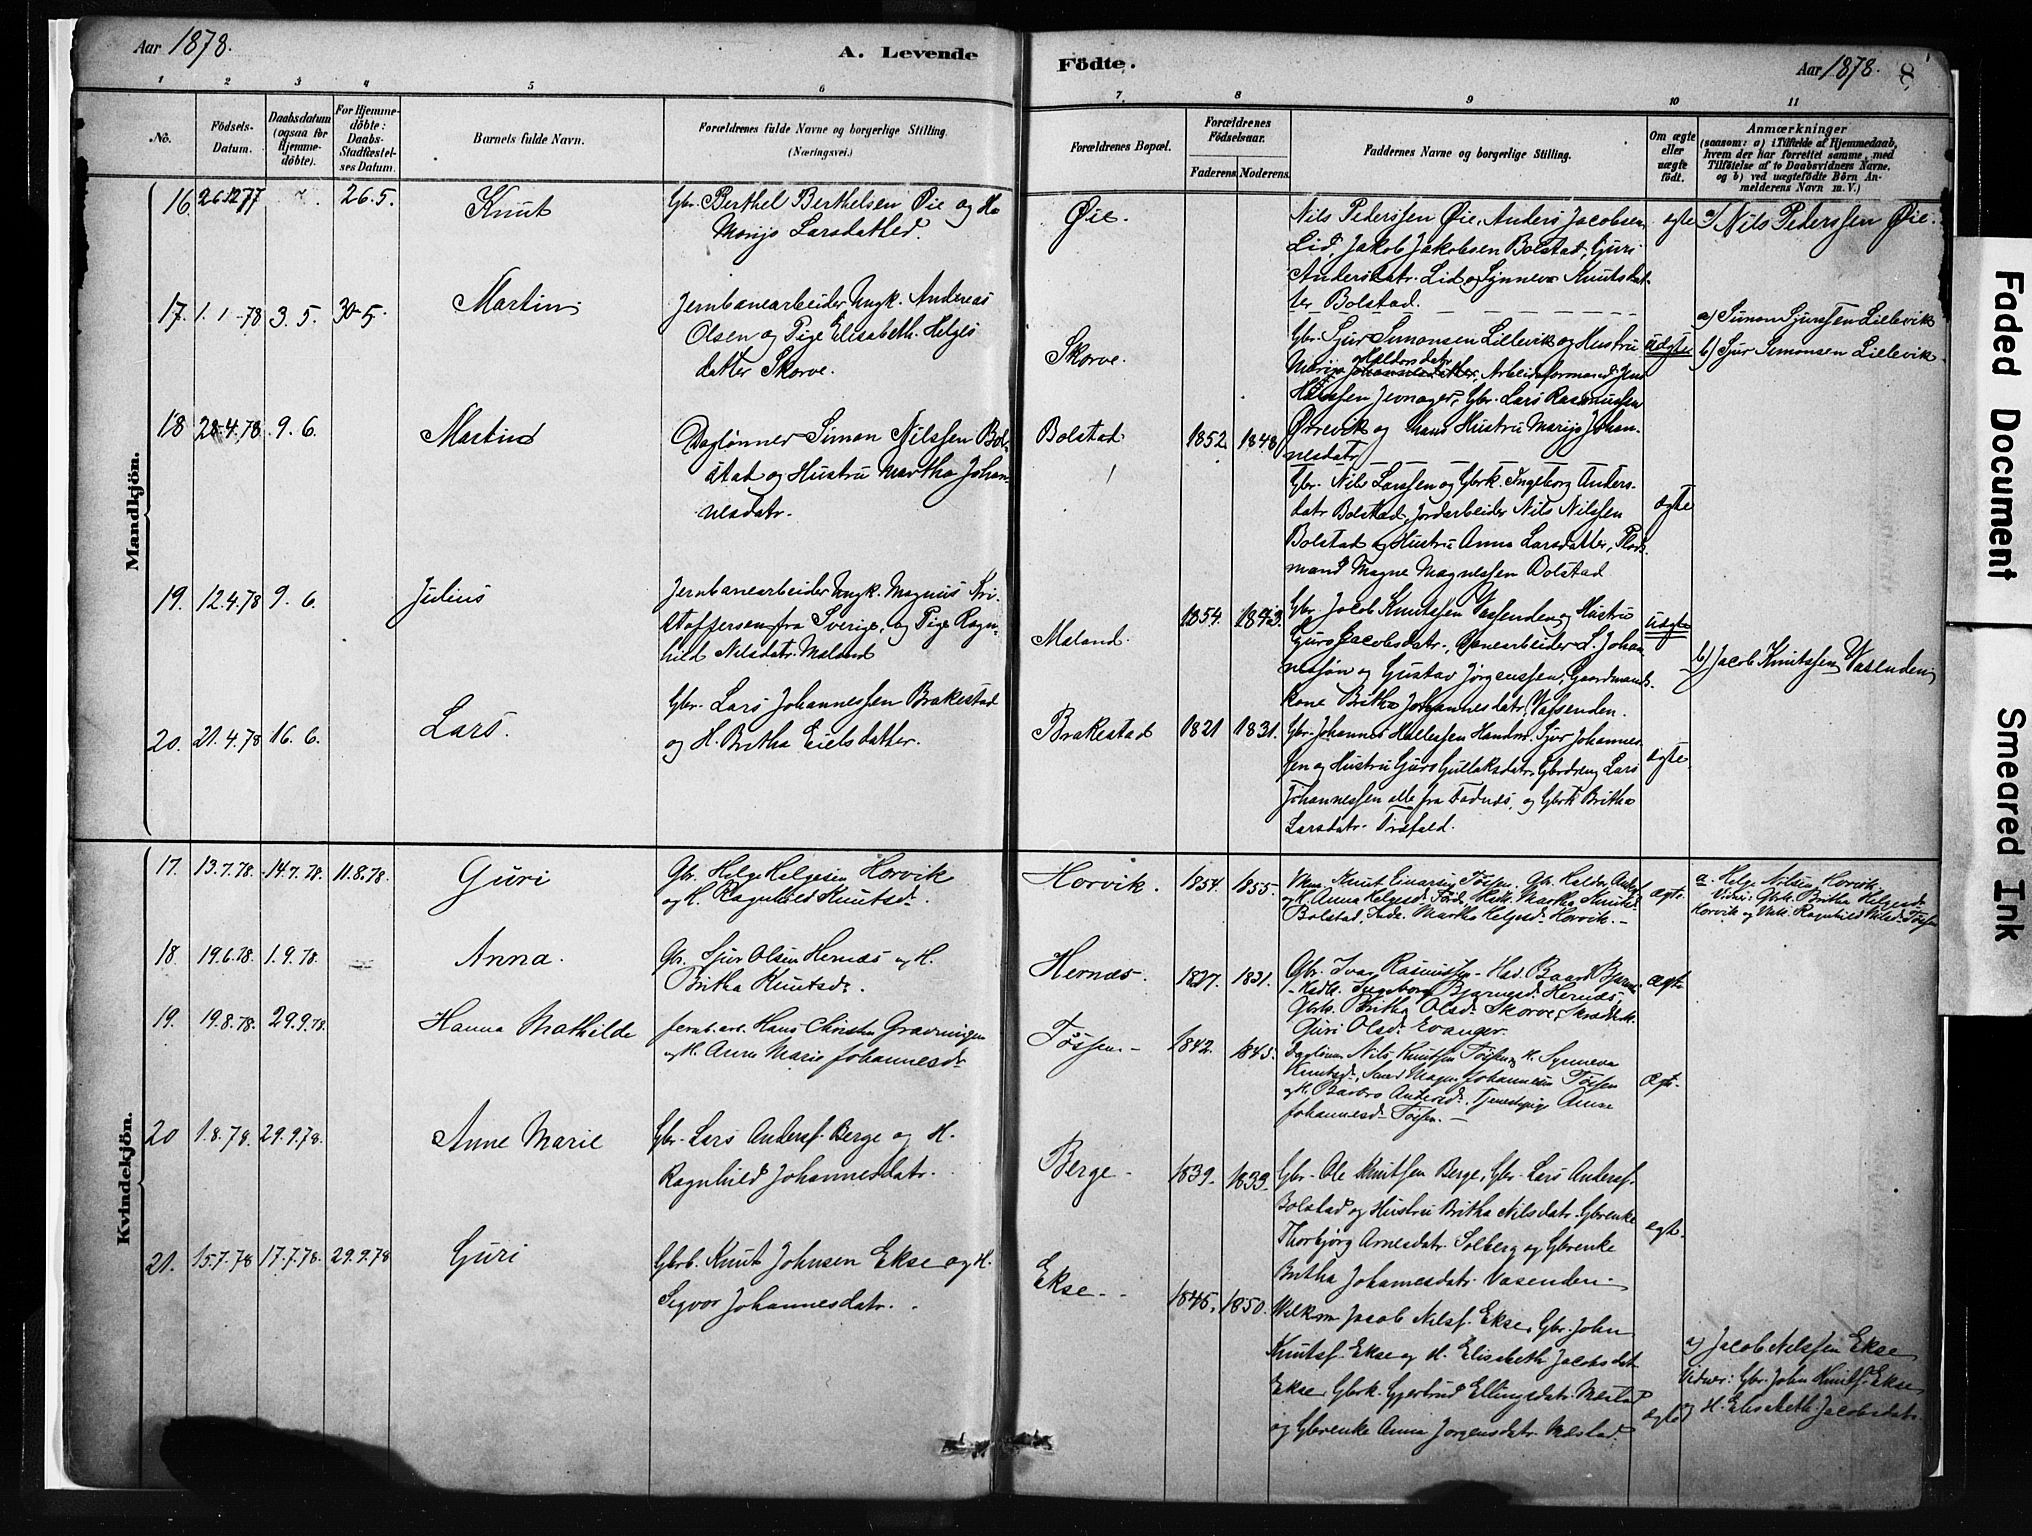 Aar 1878.
A. Levende
Födte.
Aar 1878.
8
1 2 3 4 5 6
7 8 9 10 11
No.
Födsels-
Datum.
Daabsdatum
(ogsaa for
Hjemme-
döbte).
For Hjemme-
döbte:
Daabs-
Stadfæstel-
ses Datum.
Barnets fulde Navn.
Forældrenes fulde Navne og borgerlige Stilling.
(Næringsvei.)
Forældrenes Bopæl.
Forældrenes
Födselsaar.
Faderens
Moderens.
Faddernes Navne og borgerlige Stilling.
Om ægte
eller
uægte
födt.
Anmærkninger
(saasom: a) i Tilfælde af Hjemmedaab,
hvem der har forrettet samme, med
Tilföielse af to Daabsvidners Navne.
og b) ved uægtefödte Börn An-
melderens Navn m. V.)
Mandkjön.
16 26.12.77 26.5. Knut
Gbr. Berthel Berthelsen Øie og H.
Marijo Larsdatter.
Øie.
Nils Pederssen Øie, Anders Jacobsen
Lid, Jakob Jakobsen Bolstad, Guri
Andersdatr. Lid og Synneva Knutsdat-
ter Bolstad.
ægte
a) Nils Pederssen Øie.
17. 1.1.78 3.5. 30.5. Martin
Jernbanearbeider Ungk. Andreas
Olsen og Pige Elisabeth Helges
datter Skorve.
Skorve.
Gbr. Sjur Simonsen Lillevik og Hustru
Marijo Haldorsdatr., Arbeidsformand Jens
Hanssen Jevnager, Gbr. Lars Rasmussen
Ørrevik og hans Hustru Marijo Johan-
nesdatr.
uægte
a) Simon Sjurssen Lillevik
b) Sjur Simonsen Lillevik
18 28.4.78 9.6. Martin
Daglønner Simon Nilssen Bol-
stad og Hustru Martha Johan-
nesdatr.
Bolstad
1852. 1848
Gbr. Nils Larssen og Gbrk. Ingeborg Anders-
datr Bolstad, Jordarbeider Nils Nilssen
Bolstad og Hustru Anna Larsdatter,
mand Magne Magnessen Bolstad
ægte
19. 12.4.78 9.6. Julius
Jernbanearbeider Ungk. Magnus Kri-
stoffersen fra Sverige, og Pige Ragn-
hild Nilsdatr. Mæland
Mæland.
1854. 1843.
Gbr. Jacob Knutssen Vassenden og Hustru
Guro Jacobsdatr., Banearbeider L. Johan-
nessøn og Gustav Jørgenssen, Gaardmands-
kone Britha Johannesdatr. Vassenden.
uægte
b) Jacob Knutssen Vasenden
20. 21.4.78 16.6. Lars.
Gbr. Lars Johannessen Brakestad
og H. Britha Eielsdatter.
Brakestad
1821 1831.
Gbr. Johannes Hallessen, Sjur Johannes-
sen og Hustru Guro Gullaksdatr, Gbrdreng Lars
Johannessen alle fra Fadnes, og Gbrk Britha
Larsdatr. Træfald.
ægte.
Kvindekjön.
17. 13.7.78. 14.7.78. 11.8.78. Guri
Gbr. Helge Helgesen Horvik
og H. Ragnhild Knutsd.
Horvik.
1854. 1855.
Knut Einarsen Tøssen, Gbr. Haldor
og H. Anna Helgesd., Martha Knutsd.
Bolstad, Martha Helgesd. Horvik.
ægte.
a. Helge Nilsen Horvik,
Vidner: Gbrk. Britha Helgesd.
Horvik og Ragnhild Nilsd. Tøssen
18. 19.6.78. 1.9.78. Anna.
Gbr. Sjur Olsen Hernæs og H.
Britha Knutsd.
Hernæs.
1827. 1831.
Gbr. Ivar Rasmussen, Baard Bjarne
Ingeborg Bjarnesd. Hernæs,
Gbrk. Britha Olsd. Skorve,
Guri Olsd. Evanger.
ægte
19. 19.8.78. 29.9.78. Hanna Mathilde
Jernb. arb. Hans Christen Gravningen
og H. Anne Marie Johannesd.
Tøssen.
1842. 1843.
Daglønner Nils Knutsen Tøssen og H. Synneva
Knutsd., Magne Johannessen Tøssen
og H. Barbro Andersd., Tjenestepige Anne
Johannesd. Tøssen.
ægte.
20 1.8.78. 29.9.78. Anne Marie
Gbr. Lars Andersf. Berge og H.
Ragnhild Johannesdatr.
Berge.
1839. 1839.
Gbr. Ole Knutssen Berge, Gbr. Lars Andersf.
Bolstad og Hustru Britha Nilsdatr. Gbrenke
Thorbjørg Arnesdatr. Solberg og Gbrenke
Britha Johannesdatr. Vasenden.
ægt.
21. 15.7.78 17.7.78. 29.9.78 Guri
Gbrb. Knut Johnsen Ekse og H.
Sigvor Johannesdatr.
Ekse.
1845. 1850.
Jacob Nilsf. Ekse, Gbr. John
Knutsf. Ekse og H. Elisabeth Jacobsdat.
Ekse, Gbrk. Gjertrud Ellingsdatr. Mæstad
og Gbrenke Anna Jørgensdatr. Mæstad.
ægte
a) Jacob Nilssen Ekse
Vidner: Gbr. John Knutsf. Ekse
og H. Elisabeth Jacobsdatr.
Faded Document
Smeared Ink